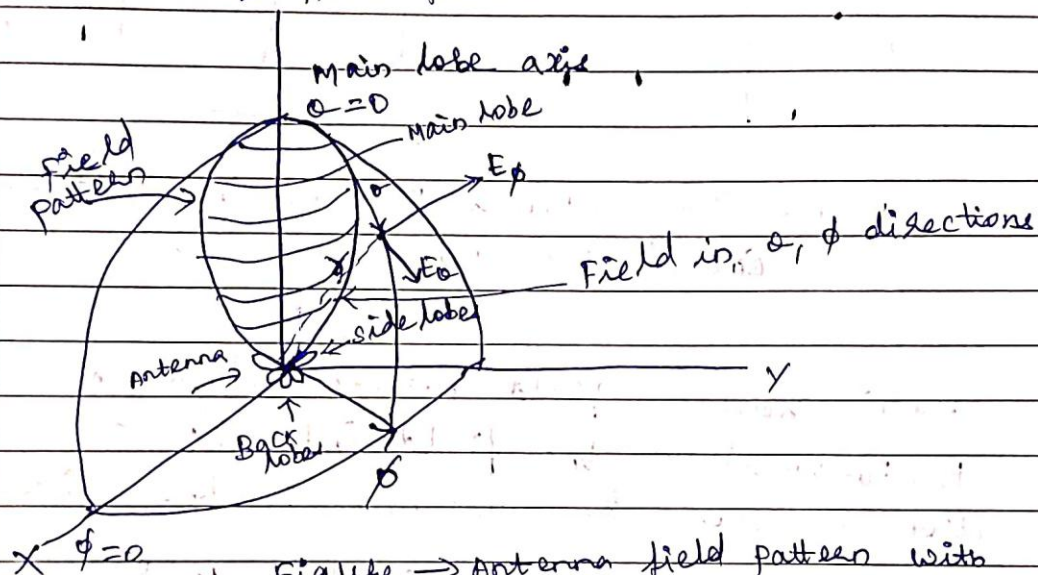 Main lobe axis
θ = 0
Main lobe
Field
pattern
Eφ
θ
Field in, θ, φ directions
γ
Eθ
side lobes
Antenna
Y
Back
lobes
φ
X φ=0
Figure → Antenna field pattern with